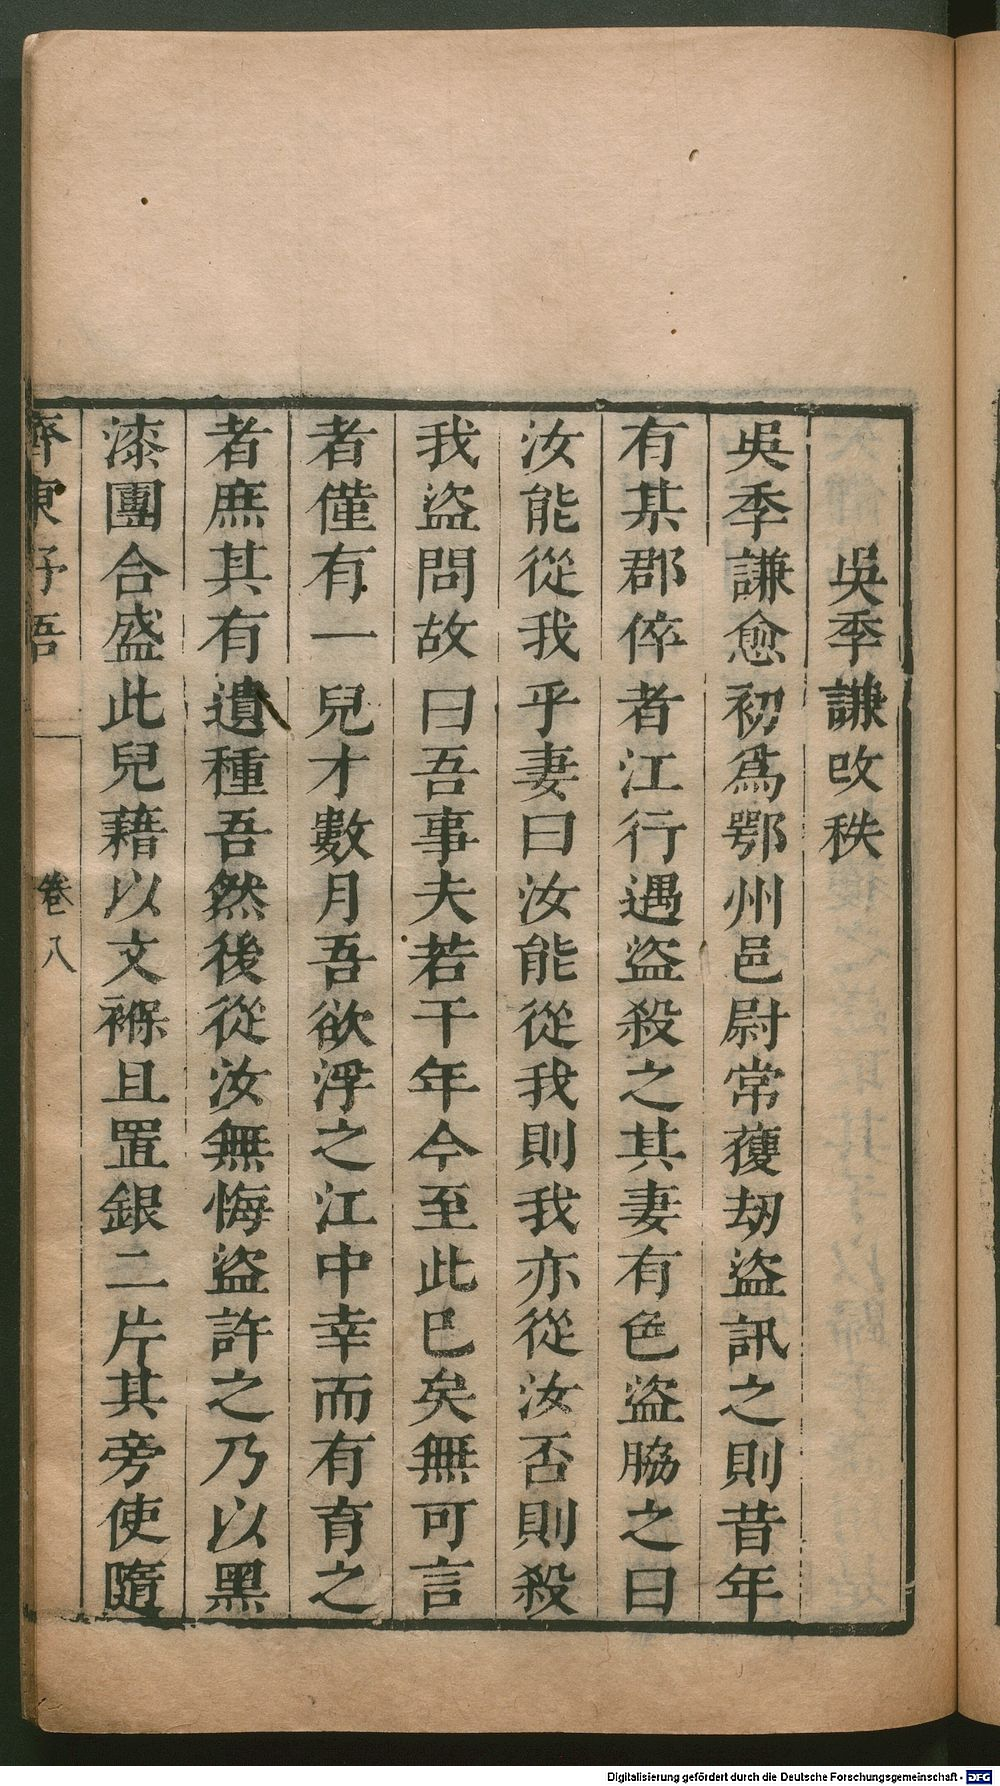 吳季謙攺秩
吳季謙愈初爲鄂州邑尉常獲劫盜訊之則昔年
有某郡倅者江行遇盜殺之其妻有色盜脇之曰
汝能從我乎妻曰汝能從我則我亦從汝否則殺
我盜問故曰吾事夫若干年今至此已矣無可言
者僅有一兒才數月吾欲浮之江中幸而有育之
者庶其有遺種吾然後從汝無悔盜許之乃以黑
漆團合盛此兒藉以文褓且置銀二片其旁使隨
齊東野語
卷八
Digitalisierung gefördert durch die Deutsche Forschungsgemeinschaft - DFG